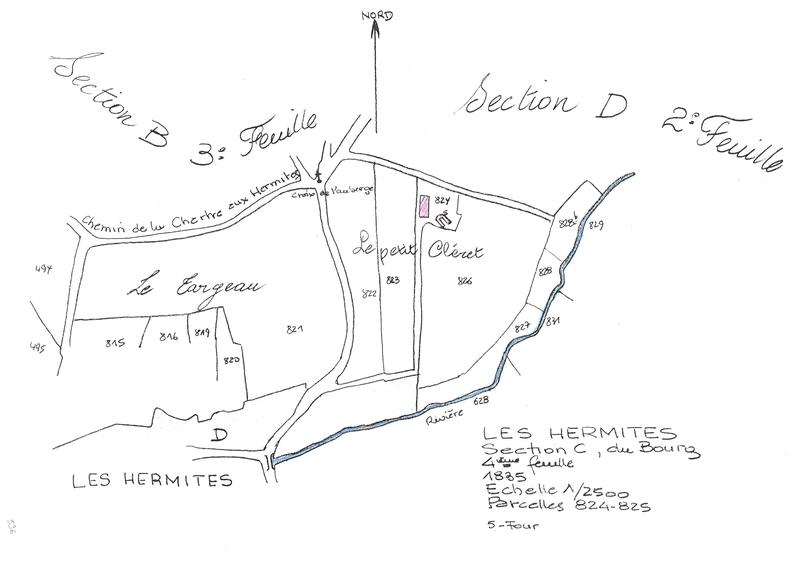 NORD
Section B 3e Feuille
Section D 2e Feuille
Chemin de la Chartre aux Hermites
Croix de Vauberge
824
5
828b
829
Le petit Cléret
494
Le Targeau
822
823
826
828
495
815
816
819
820
821
827
831
D
Rivière
628
LES HERMITES
LES HERMITES
Section C, du Bourg
4ème feuille
1835
Echelle 1/2500
Parcelles 824-825
5-Four